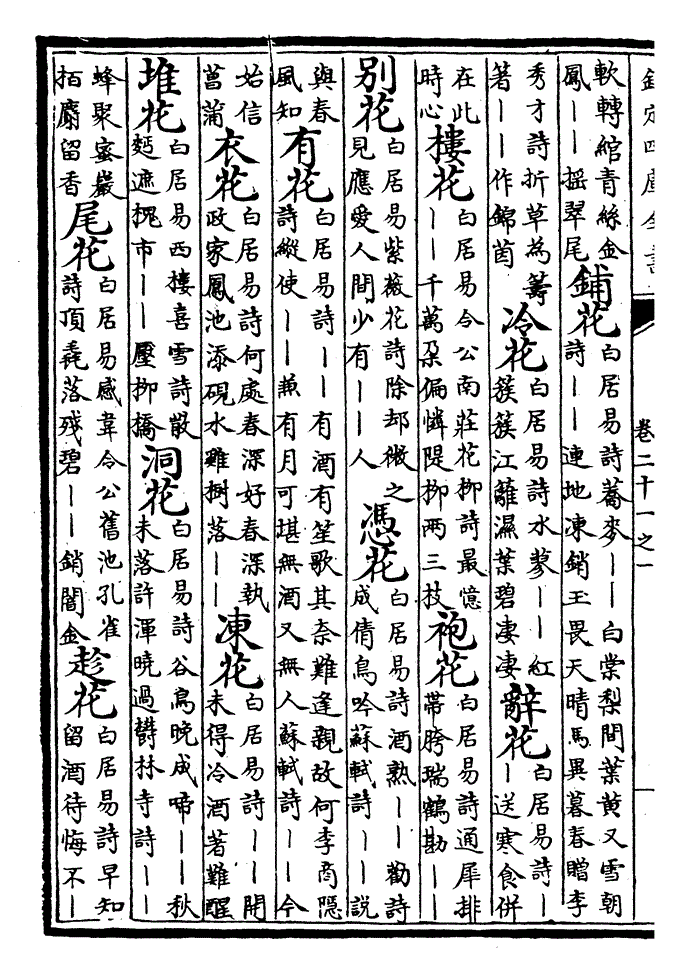 欽定四庫全書 卷二十一之一
軟轉綰青絲金鳳——搖翠尾 鋪花 白居易詩蕎麥——白棠梨間葉黃又雪朝詩——連地凍銷王畏天晴馬異暮春贈李
秀才詩折草為籌著——作錦茵 冷花 白居易詩水蓼——紅簇簇江蘺濕葉碧凄凄 辭花 白居易詩——送寒食併
在此時心 樓花 白居易令公南莊花柳詩最憶——千萬朶偏憐隄柳兩三枝 袍花 白居易詩通犀排帶胯瑞鶴勘——
別花 白居易紫薇花詩除却微之見應愛人間少有——人 憑花 白居易詩酒熟——勸詩成倩鳥吟蘇軾詩——說
與春風知 有花 白居易詩——有酒有笙歌其奈難逢親故何李商隱詩縱使——兼有月可堪無酒又無人蘇軾詩——今
始信菖蒲 衣花 白居易詩何處春深好春深執政家鳳池添硯水雞樹落—— 凍花 白居易詩——開未得冷酒著難醒
堆花 白居易西樓喜雪詩散麫遮槐市——壓柳橋 洞花 白居易詩谷鳥晚成啼——秋未落許渾曉過鬱林寺詩——
蜂聚蜜巖栢麝留香 尾花 白居易感韋令公舊池孔雀詩頂毳落殘碧——銷闇金 趁花 白居易詩早知留酒待悔不—